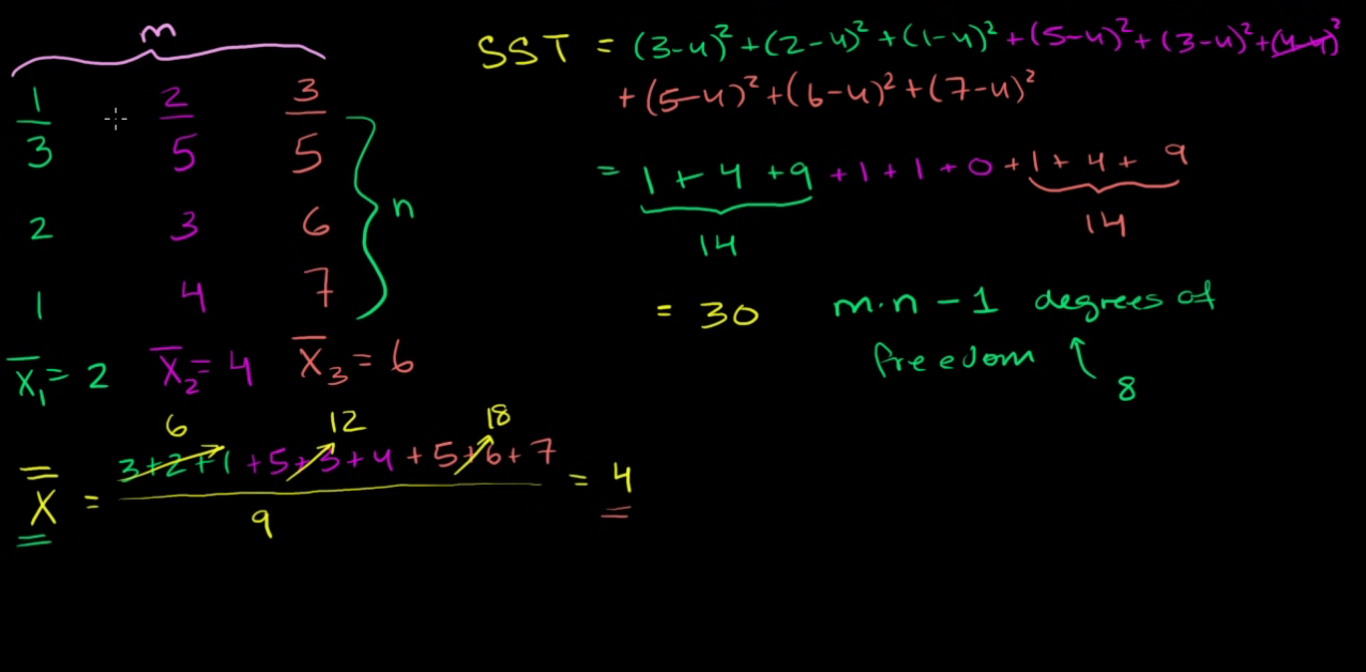 m
1 2 3
3 5 5
2 3 6
1 4 7
n
X̄₁ = 2 X̄₂ = 4 X̄₃ = 6
6 12 18
X̿ = 3+2+1 +5+3+4 +5+6+7 = 4
9
SST = (3-4)² + (2-4)² + (1-4)² + (5-4)² + (3-4)² + (4-4)²
+ (5-4)² + (6-4)² + (7-4)²
= 1 + 4 + 9 + 1 + 1 + 0 + 1 + 4 + 9
14 14
= 30 m·n - 1 degrees of
freedom
8